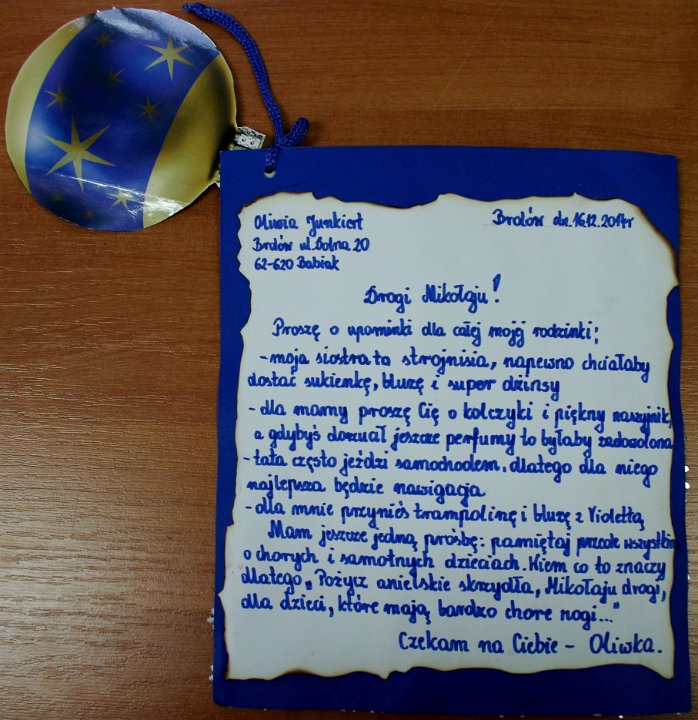 Oliwia Junkiert
Brdów dn. 16.12.2014r
Brdów ul. Dolna 20
62-620 Babiak
Drogi Mikołaju!
Proszę o upominki dla całej mojej rodzinki;
- moja siostra ta strojnisia, napewno chciałaby
dostać sukienkę, bluzę i super dżinsy
- dla mamy proszę Cię o kolczyki i piękny naszyjnik,
a gdybyś dorzucał jeszcze perfumy to byłaby zadowolona
- tata często jeździ samochodem, dlatego dla niego
najlepsza będzie nawigacja
- dla mnie przynieś trampolinę i bluzę z Violettą
Mam jeszcze jedną prośbę: pamiętaj przede wszystkim
o chorych i samotnych dzieciach. Wiem co to znaczy
dlatego „Pożycz anielskie skrzydła, Mikołaju drogi,
dla dzieci, które mają bardzo chore nogi..."
Czekam na Ciebie - Oliwka.